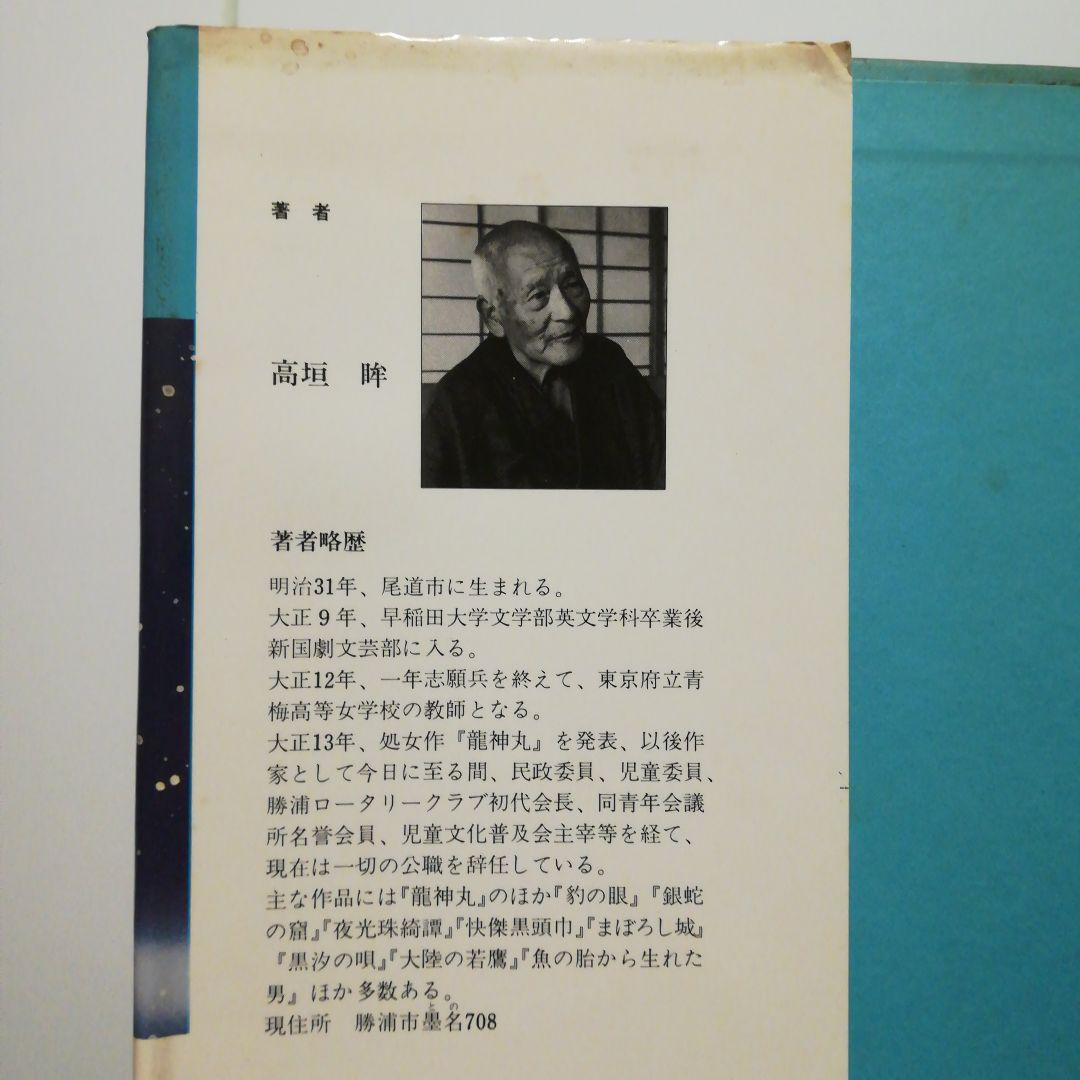 著者
高垣 眸
著者略歴
明治31年、尾道市に生まれる。
大正9年、早稲田大学文学部英文学科卒業後
新国劇文芸部に入る。
大正12年、一年志願兵を終えて、東京府立青
梅高等女学校の教師となる。
大正13年、処女作『龍神丸』を発表、以後作
家として今日に至る間、民政委員、児童委員、
勝浦ロータリークラブ初代会長、同青年会議
所名誉会員、児童文化普及会主宰等を経て、
現在は一切の公職を辞任している。
主な作品には『龍神丸』のほか『豹の眼』『銀蛇
の窟』『夜光珠綺譚』『快傑黒頭巾』『まぼろし城』
『黒汐の唄』『大陸の若鷹』『魚の胎から生れた
男』ほか多数ある。
との
現住所 勝浦市墨名708